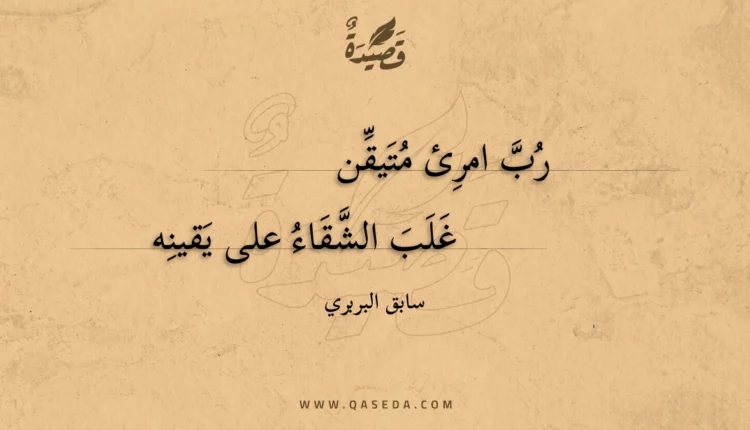 قَصِيْدَةٌ
رُبَّ امرِئ مُتَيقِّن
غَلَبَ الشَّقَاءُ على يَقينِه
سابق البربري
WWW.QASEDA.COM